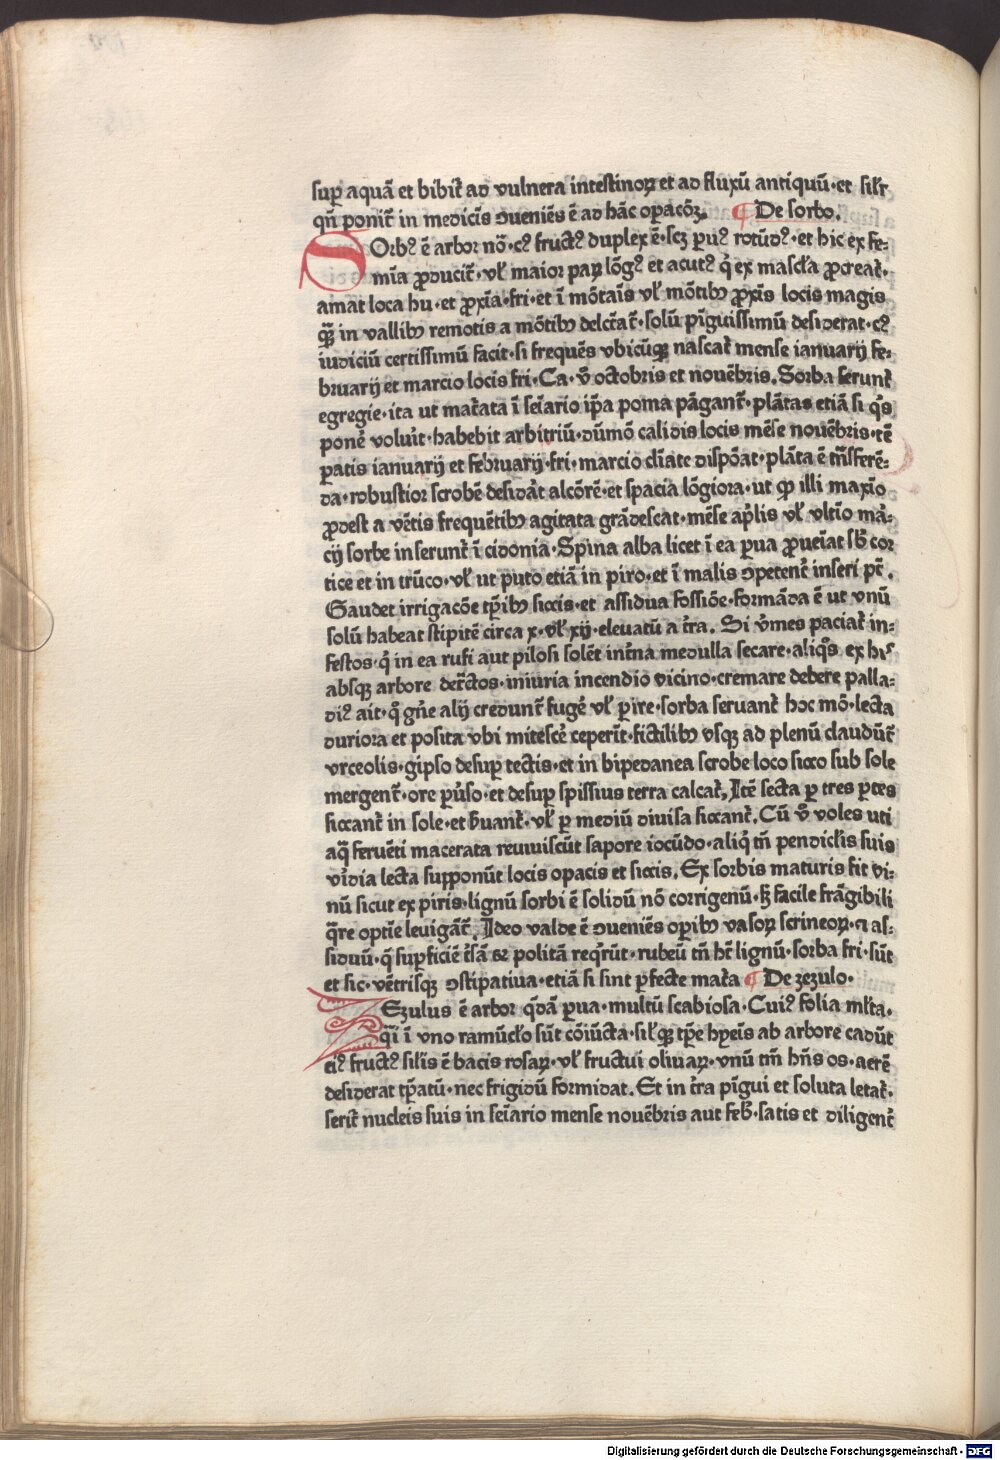 suꝑ aquā et bibit᷑ ad vulnera intestinoꝝ et ad fluxū antiquū·et silr̄
qn̄ ponit᷑ in medicīs ꝯueniēs ē ad hāc oꝑacōꝫ. ¶ De sorbo.
SOrbꝰ ē arbor nō·cꝰ fructꝰ duplex ē·scꝫ ꝑuꝰ rotūdꝰ·et hic ex fe⸗
mīa ꝓducit᷑·vl̄ maior paꝝ lōgꝰ et acutꝰ q̇ ex mascl̄a ꝓcreat᷑·
amat loca hu·et ꝓxīa·fri·et ī mōtaīs vl̄ mōtibꝫ ꝓxīs locis magis
ꝙ̄ in vallibꝫ remotis a mōtibꝫ delc̄tat᷑·solū pīguissimū desiderat·cꝰ
iudiciū certissimū facit·si frequēs vbicūqꝫ nascat᷑ mense ianuarij fe⸗
bruarij et marcio locis fri·Ca·v̄ octobris et nouēbris. Sorba serunt᷑
egregie·ita ut mat᷑ata ī seīario ip̄a poma pāgant᷑·plātas etiā si q̇s
poneꝰ voluīt·habebit arbitriū·dūmō calidis locis mēse nouēbris·tē
ꝑatis ianuarij et februarij·fri·marcio cl̄inate dispōat·plāta ē tn̄sferē⸗
da·robustior scrobē desid᷑at alcōrē·et spacia lōgiora·ut ꝙ illi maxīo
ꝓdest a vētis frequētibꝫ agitata grādescat·mēse ap̄lis vl̄ vltīo mā⸗
cij sorbe inserunt᷑ ī cidonia·Spīna alba licet ī ea ꝑua ꝓueīat sb̄ cor
tice et in trūco·vl̄ ut puto etiā in piro·et ī malis ꝯpetent᷑ inseri pt̄.
Gaudet irrigacōe tꝑibꝫ siccis·et assidua fossiōe·formāda ē ut vnū
solū habeat stipitē circa x·vl̄ xij·eleuatū a t᷑ra. Si v̄mes paciat᷑ in⸗
festos·q̇ in ea rufi aut pilosi solēt int᷑na medulla secare·aliq̇s ex hiˢ
absqꝫ arbore det᷑ctos·iniuria incendio vicino·cremare debere palla⸗
diꝰ ait·q̄ gn̄e alij credunt᷑ fuge᷑ vl̄ ꝑire·sorba seruant᷑ hoc mō·lecta
duriora et posita vbi mitesce᷑ ceperīt·fictilibꝫ vsqꝫ ad plenū claudūt᷑
vrceolis·gipso desuꝑ tectis·et in bipedanea scrobe loco sicco sub sole
mergent᷑·ore ꝑuso·et desuꝑ spissius terra calcat᷑, Itē secta ꝑ tres ꝑtes
siccant᷑ in sole·et ẜuant᷑·vl̄ ꝑ mediū diuisa siccant᷑. Cū v̄ voles uti
aq̄ feruēti macerata reuiuiscūt sapore iocūdo·aliq̇ tn̄ pendicl̄is suis
vīdia lecta supponūt locis opacis et siccis. Ex sorbis maturis fit vi⸗
nū sicut ex piris·lignū sorbi ē solidū nō corrigenū·ꝫ facile frāgibili
q̄re optīe leuigāt᷑. Ideo valde ē ꝯueniēs oꝑibꝫ vasoꝝ scrineoꝝ·⁊ as⸗
siduū·q̄ suꝑficiē t᷑sā & politā req̇rūt·rubeū tn̄ hꝫ lignū·sorba fri·sūt
et sic·vētrisqꝫ ꝯstipatiua·etiā si sint ꝑfecte mat᷑a ¶ De zezulo·
ZEzulus ē arbor q̄dā ꝑua·multū scabiosa·Cuiꝰ folia ml̄ta·
q̄i ī vno ramūcl̄o sūt cōiūcta·sil̄qꝫ tꝑe hyeīs ab arbore cadūt
eiꝰ fructꝰ sil̄is ē bacis rosaꝝ·vl̄ fructui oliuaꝝ·vnū tn̄ hn̄s os·aerē
desiderat tꝑatū·nec frigidū formidat. Et in t᷑ra pīgui et soluta letat᷑·
serit᷑ nucleis suis in seīario mense nouēbris aut feb᷑·satis et diligent᷑
Digitalisierung gefördert durch die Deutsche Forschungsgemeinschaft · DFG